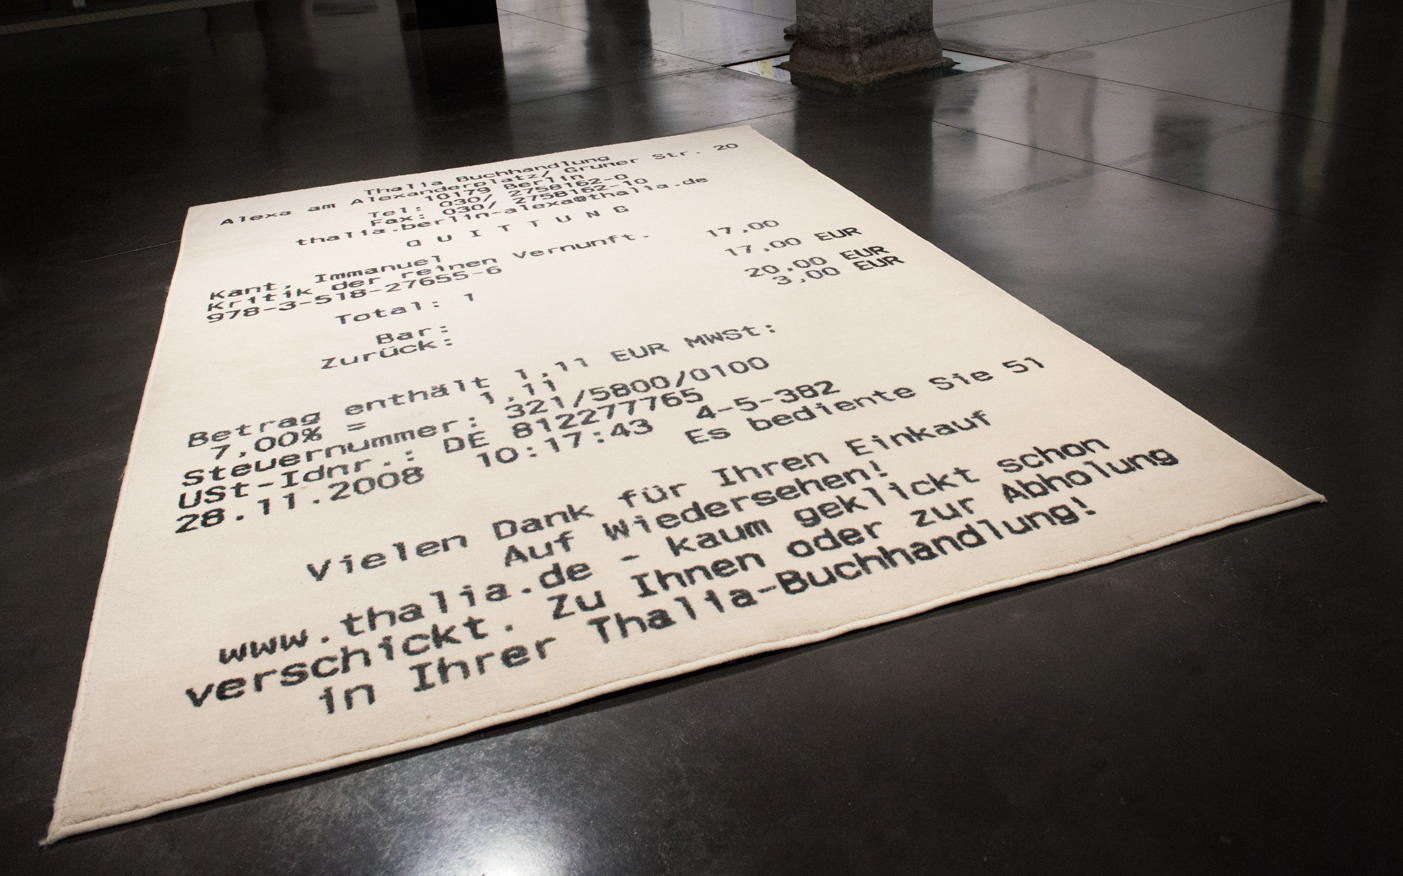 Thalia Buchhandlung
Alexa am Alexanderplatz/ Gruner Str. 20
10179 Berlin
Tel: 030/ 2758162-0
Fax: 030/ 2758162-10
thalia.berlin-alexa@thalia.de
Q U I T T U N G
Kant, Immanuel
Kritik der reinen Vernunft. 17,00
978-3-518-27655-6
Total: 1 17,00 EUR
Bar: 20,00 EUR
Zurück: 3,00 EUR
Betrag enthält 1,11 EUR MWSt:
7,00% = 1,11
Steuernummer: 321/5800/0100
USt-Idnr.: DE 812277765
28.11.2008 10:17:43 4-5-382
Es bediente Sie 51
Vielen Dank für Ihren Einkauf
Auf Wiedersehen!
www.thalia.de - kaum geklickt schon
verschickt. Zu Ihnen oder zur Abholung
in Ihrer Thalia-Buchhandlung!